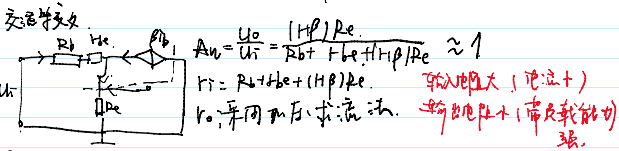 交流等效
Rb rbe βib
Ui
Re
Au = Uo/Ui = (1+β)Re / Rb + rbe + (1+β)Re ≈ 1
ri = Rb + rbe + (1+β)Re.
ro: 采用加压求流法.
输入电阻大 (电流小)
输出电阻小 (带负载能力强.